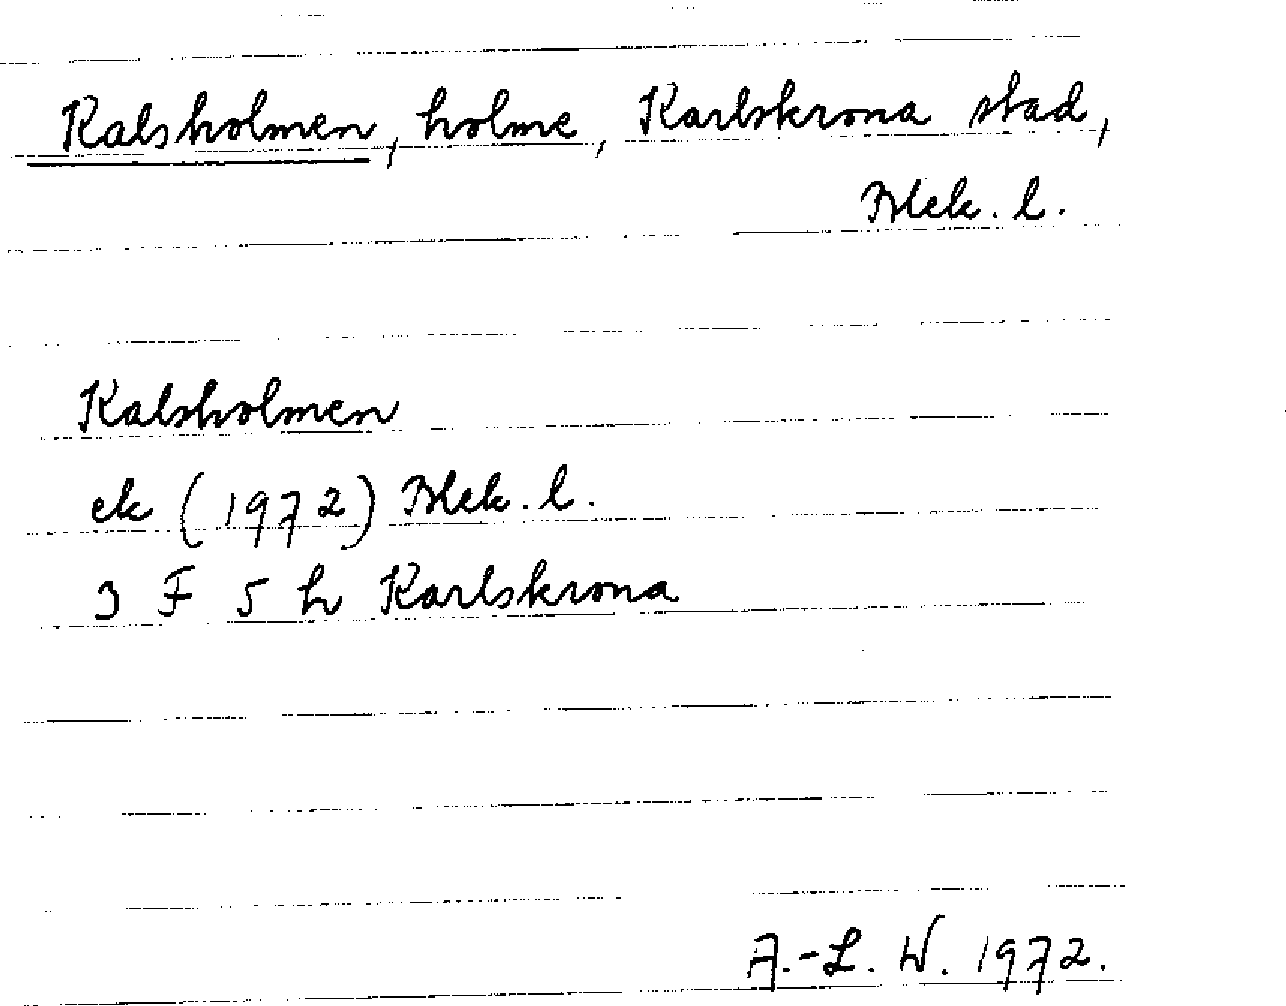 Kalsholmen, holme, Karlskrona stad,
Blek. l.
Kalsholmen
ek (1972) Blek. l.
3 F 5 h Karlskrona
A.-L. W. 1972.